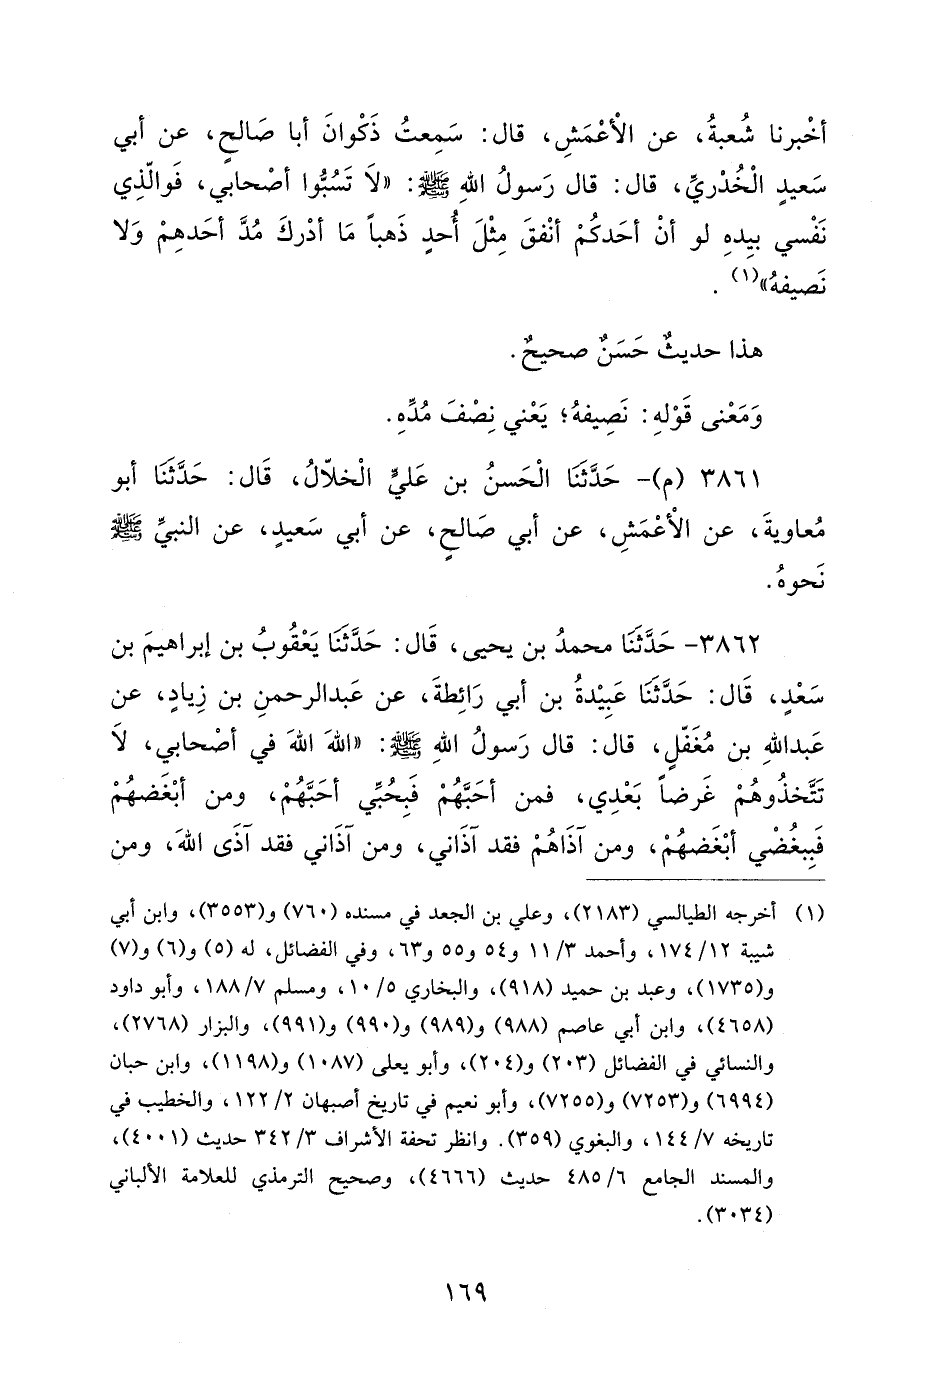 أخْبرنا شُعبةُ، عن الْأعْمَشِ، قال: سَمِعتُ ذَكْوانَ أبا صَالحٍ، عن أبي
سَعيدٍ الْخُدْريِّ، قال: قال رَسولُ اللهِ ﷺ: «لاَ تَسُبُّوا أصْحابي، فَوالّذِي
نَفْسي بيدِهِ لو أنْ أحَدكُمْ أنْفقَ مِثْلَ أُحدٍ ذَهباً مَا أدْركَ مُدَّ أحَدهِمْ وَلا
نَصيفهُ»(١) .
هذا حديثٌ حَسَنٌ صحيحٌ.
وَمَعْنى قَوْلهِ: نَصِيفهُ؛ يَعْني نِصْفَ مُدِّهِ.
٣٨٦١ (م)- حَدَّثَنَا الْحَسنُ بن عَليٍّ الْخلاّلُ، قَال: حَدَّثَنَا أبو
مُعاويةَ، عن الْأعْمَشِ، عن أبي صَالحٍ، عن أبي سَعيدٍ، عن النبيِّ ﷺ
نَحوهُ.
٣٨٦٢- حَدَّثَنَا محمدُ بن يحيى، قَال: حَدَّثَنَا يَعْقُوبُ بن إبراهيمَ بن
سَعْدٍ، قَال: حَدَّثَنَا عَبِيْدةُ بن أبي رَائِطةَ، عن عَبدالرحمنِ بن زِيادٍ، عن
عَبداللهِ بن مُغَفّلٍ، قال: قال رَسولُ اللهِ ﷺ: «اللهَ اللهَ في أصْحابي، لاَ
تَتَّخذُوهُمْ غَرضاً بَعْدِي، فمن أحَبَّهُمْ فَبِحُبِّي أحَبَّهُمْ، ومن أبْغَضهُمْ
فَبِبغُضْي أبْغَضهُمْ، ومن آذَاهُمْ فقد آذَاني، ومن آذَاني فقد آذَى اللهَ، ومن
(١) أخرجه الطيالسي (٢١٨٣)، وعلي بن الجعد في مسنده (٧٦٠) و(٣٥٥٣)، وابن أبي
شيبة ١٢/ ١٧٤، وأحمد ٣/ ١١ و٥٤ و٥٥ و٦٣، وفي الفضائل، له (٥) و(٦) و(٧)
و(١٧٣٥)، وعبد بن حميد (٩١٨)، والبخاري ٥/ ١٠، ومسلم ٧/ ١٨٨، وأبو داود
(٤٦٥٨)، وابن أبي عاصم (٩٨٨) و(٩٨٩) و(٩٩٠) و(٩٩١)، والبزار (٢٧٦٨)،
والنسائي في الفضائل (٢٠٣) و(٢٠٤)، وأبو يعلى (١٠٨٧) و(١١٩٨)، وابن حبان
(٦٩٩٤) و(٧٢٥٣) و(٧٢٥٥)، وأبو نعيم في تاريخ أصبهان ٢/ ١٢٢، والخطيب في
تاريخه ٧/ ١٤٤، والبغوي (٣٥٩). وانظر تحفة الأشراف ٣/ ٣٤٢ حديث (٤٠٠١)،
والمسند الجامع ٦/ ٤٨٥ حديث (٤٦٦٦)، وصحيح الترمذي للعلامة الألباني
(٣٠٣٤).
١٦٩